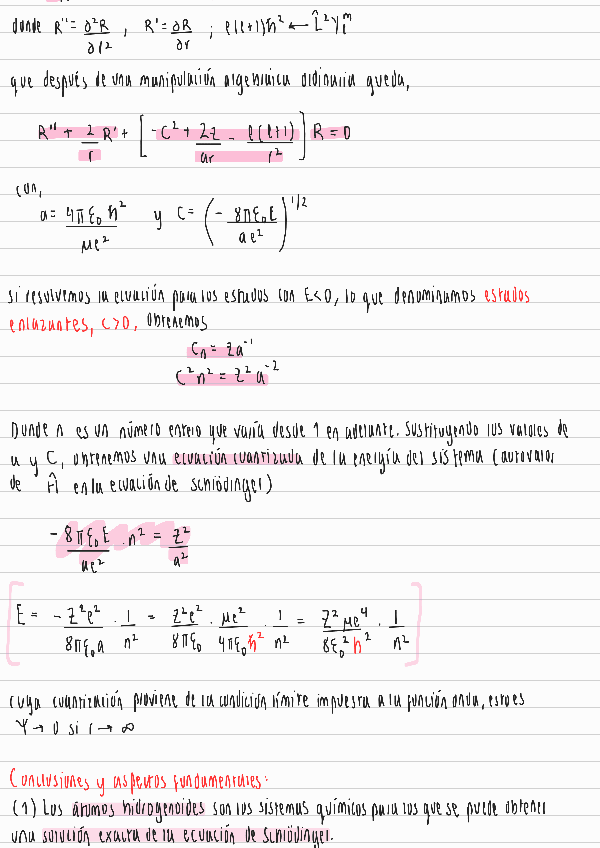 donde R'' = ∂²R/∂r² , R' = ∂R/∂r ; ℓ(ℓ+1)ħ² ← L̂²Yₗᵐ
que después de una manipulación algebraica ordinaria queda,
R'' + 2/r R' + [ -C² + 2Z/ar - ℓ(ℓ+1)/r² ] R = 0
con,
a = 4πξ₀ħ²/μe² y C = ( - 8πξ₀E/ae² )^1/2
si resolvemos la ecuación para los estados con E<0, lo que denominamos estados
enlazantes, C>0, obtenemos
Cn = Za⁻¹
C²n² = Z²a⁻²
Donde n es un número entero que varía desde 1 en adelante. Sustituyendo los valores de
a y C, obtenemos una ecuación cuantizada de la energía del sistema (autovalor
de Ĥ en la ecuación de Schrödinger)
- 8πξ₀E/ae² · n² = Z²/a²
[ E = -Z²e²/8πξ₀a · 1/n² = Z²e²/8πξ₀ · μe²/4πξ₀ħ² · 1/n² = Z²μe⁴/8ξ₀²h² · 1/n² ]
cuya cuantización proviene de la condición límite impuesta a la función onda, esto es
Ψ → 0 si r → ∞
Conclusiones y aspectos fundamentales:
(1) Los átomos hidrogenoides son los sistemas químicos para los que se puede obtener
una solución exacta de la ecuación de Schrödinger.